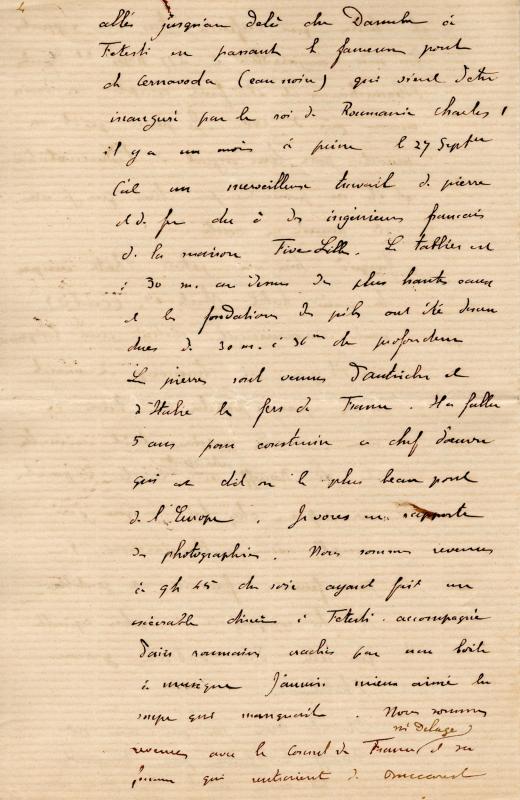 allés jusqu'au delà du Danube à
Fetesti en passant le fameux pont
de Cernavoda (eau noire) qui vient d'être
inauguré par le roi de Roumanie Charles I
il y a un mois à peine le 27 Septbre
C'est un merveilleux travail de pierre
et de fer du à des ingénieurs français
de la maison Five Lille. Le tablier est
à 30 m. au dessus des plus hautes eaux
et les fondations des piles ont été descen
dues de 30 m. à 36m de profondeur
Les pierres sont venues d'Autriche et
d'Italie les fers de France. Il a fallu
5 ans pour construire ce chef d'œuvre
qui est dit on le plus beau pont
de l'Europe. Je vous en rapporte
des photographies. Nous sommes revenus
à 9h 45 du soir ayant fait un
exécrable diner à Fetesti. accompagné
d'airs roumains crachés par une boite
à musique J'aurais mieux aimé la
soupe qui manquait. Nous sommes
Mr Delage
revenus avec le Consul de France et sa
femme qui rentraient de